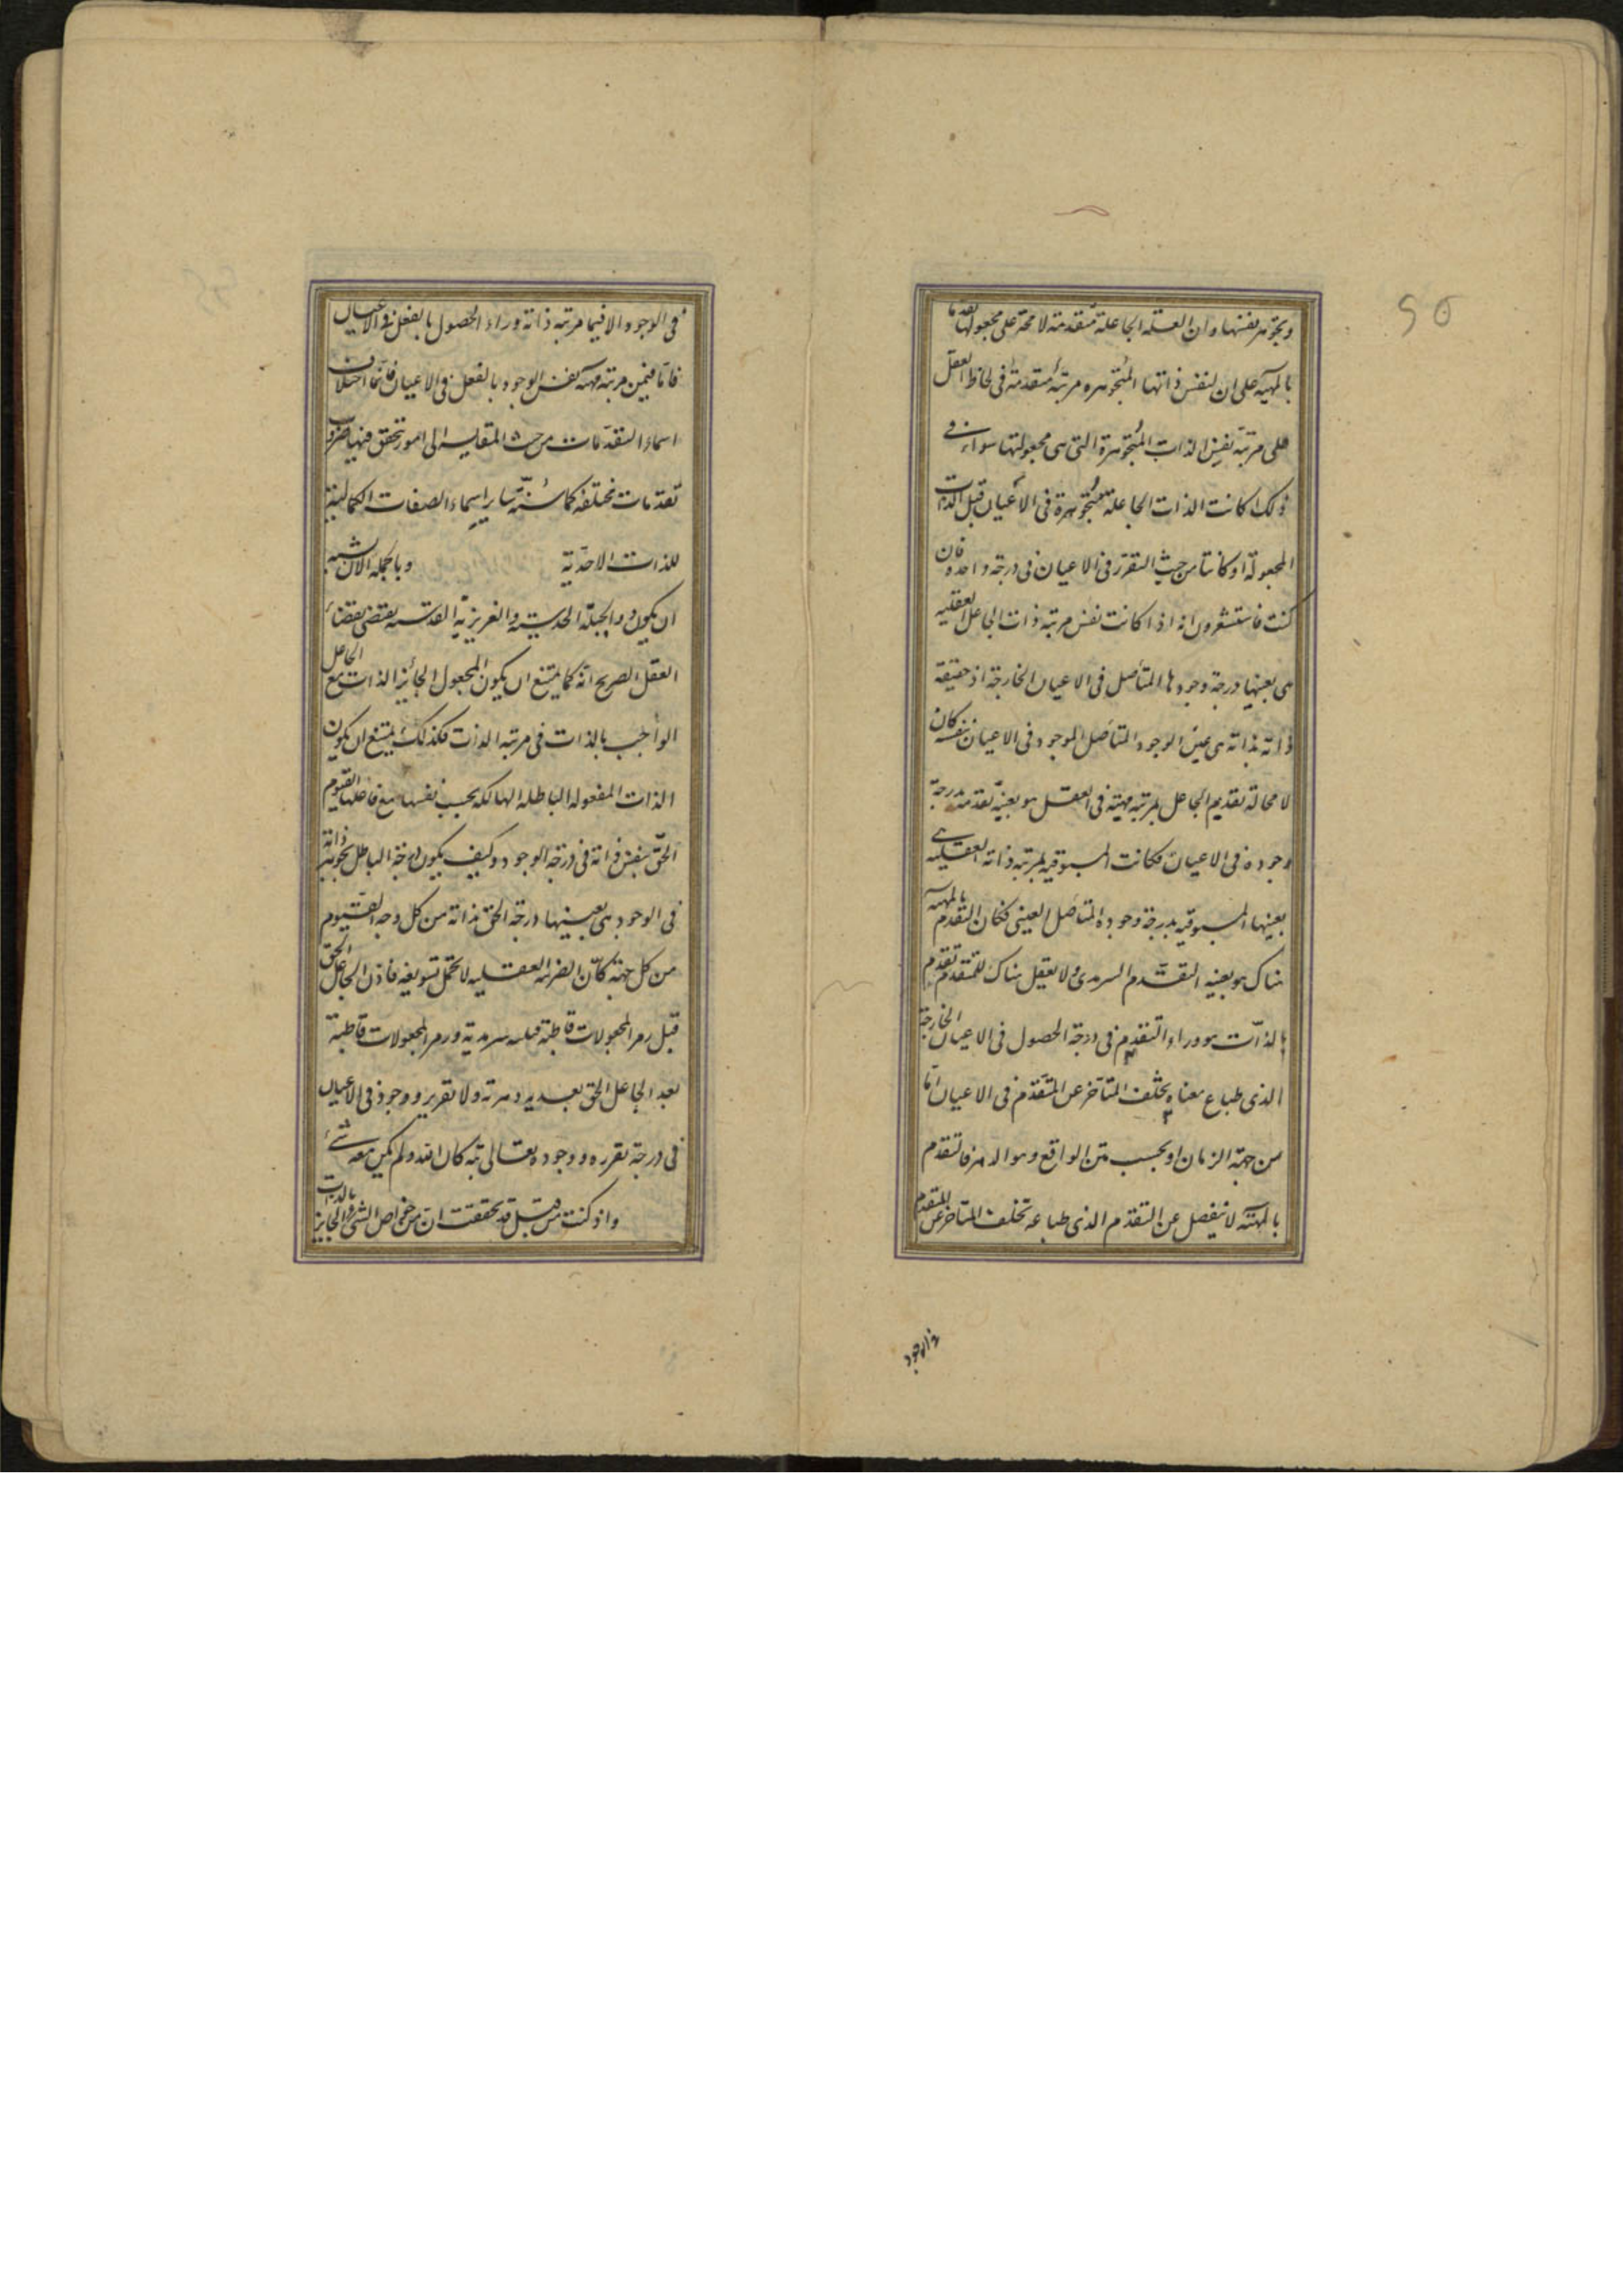 وتجوهر نفسها وان العلة الجاعلة متقدمة لا محة على مجعولها تقدما
بالمهية على ان لنفس ذاتها المتجوهره مرتبة متقدمة فى لحاظ العقل
على مرتبة نفس الذات المتجوهرة التى هى مجعولتها سواء فى
ذلك اكانت الذات الجاعلة متجوهرة فى الاعيان قبل الذات
المجعولة او كانتا من حيث التقرر فى الاعيان فى درجة واحده فان
كنت فاستشعرون انه اذا كانت نفس مرتبة ذات الجاعل العقليه
هى بعينها درجة وجودها المتأصل فى الاعيان الخارجة اذ حقيقة
ذاته بذاته هى عين الوجود المتأصل الموجود فى الاعيان بنفسه كان
لا محالة تقديم الجاعل بمرتبة مهيته فى العقل هو بعينه تقدمه بدرجة
وجوده فى الاعيان فكانت المسبوقيه بمرتبه ذاته العقليه هى
بعينها المسبوقيه بدرجة وجوده المتأصل العينى فكان التقدم بالمهيه
هناك هو بعينه التقدم السرمدى ولا يعقل هناك للمتقدم تقدم
بالذات هو وراء التقدم فى درجة الحصول فى الاعيان الخارجة
الذى طباع معناه تخلف المتأخر عن المتقدم فى الاعيان اما
من جهة الزمان او بحسب متن الواقع وهو الدهر فالتقدم
بالمهية لا ينفصل عن التقدم الذى طباعه تخلف المتاخر عن المتقدم
فى الوجود
فى الوجود الا فيما مرتبة ذاته وراء الحصول بالفعل فى الاعيان
فاما فيمن مرتبة مهيته نفس الوجود بالفعل فى الاعيان فانما اختلاف
اسماء التقدمات من حيث المقايسة الى امور تتحقق فيها ضروب
تقدمات مختلفة كما سنة ساير اسماء الصفات الكمالية
للذات الاحدية وبالجملة الان شبه
ان يكون ذو الجبلة الحدسية والغريزية القدسية يقتضى بقضاء
العقل الصريح انه كما يمتنع ان يكون المجعول الجائز الذات مع الجاعل
الواجب بالذات فى مرتبة الذات فكذلك يمتنع ان يكون
الذات المفعوله الباطله الهالكه بحسب نفسها مع فاعلها القيوم
الحق بنفس ذاته فى درجة الوجود وكيف يكون درجة الباطل بجوهر ذاته
فى الوجود هى بعينها درجة الحق بذاته من كل وجه القيوم
من كل جهة كأن الفريه العقليه لا تحتمل تسويغه فاذن الجاعل الحق
قبل زمر المجعولات قاطبة قبليه سرمدية وزمر المجعولات قاطبة
بعد الجاعل الحق بعديه دهرية ولا تقرير ووجود فى الاعيان
فى درجة تقرره ووجوده تعالى بته كان الله ولم يكن معه شئ
واذ كنت من قبل قد تحققت ان من خواص الشئ الجايز بالذات